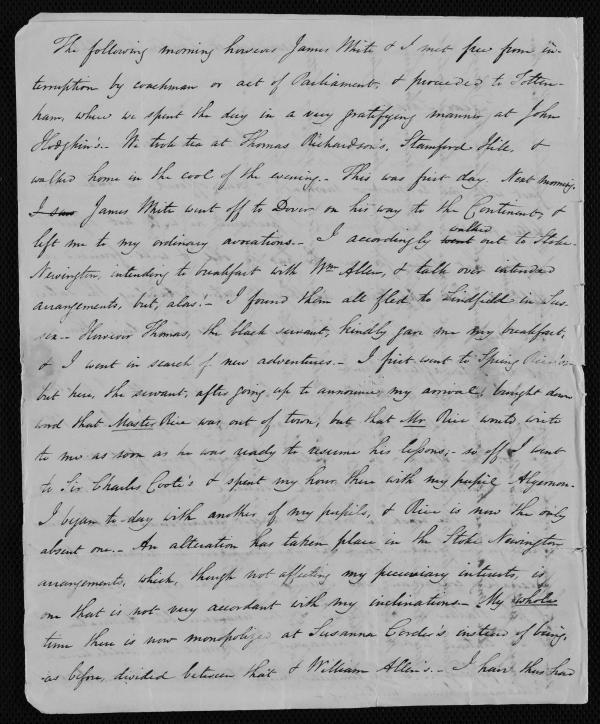 The following morning however James White & I met free from in-
terruption by coachman or act of Parliament, & proceeded to Totten-
ham, where we spent the day in a very gratifying manner at John
Hodgkin's. - We took tea at Thomas Richardson's, Stamford Hill, &
walked home in the cool of the evening. - This was first day. Next morning,
I saw James White went off to Dover on his way to the Continent, &
left me to my ordinary avocations. - I accordingly went walked out to Stoke-
Newington, intending to breakfast with Wm Allen, & talk over intended
arrangements, but, alas! - I found them all fled to Lindfield in Sus-
sex. - However Thomas, the black servant, kindly gave me my breakfast,
& I went in search of new adventures. - I first went to Spring Rice's
but here, the servant, after going up to announce my arrival, brought down
word that Master Rice was out of town, but that Mr Rice would write
to me as soon as he was ready to resume his lessons; - so off I went
to Sir Charles Coote's & spent my hour there with my pupil Algernon.
I began to-day with another of my pupils, & Rice is now the only
absent one. - An alteration has taken place in the Stoke Newington
arrangements, which, though not affecting my pecuniary interests, is
one that is not very accordant with my inclinations. - My whole
time there is now monopolized at Susanna Corder's instead of being,
as before, divided between that & William Allen's. - I have thus had